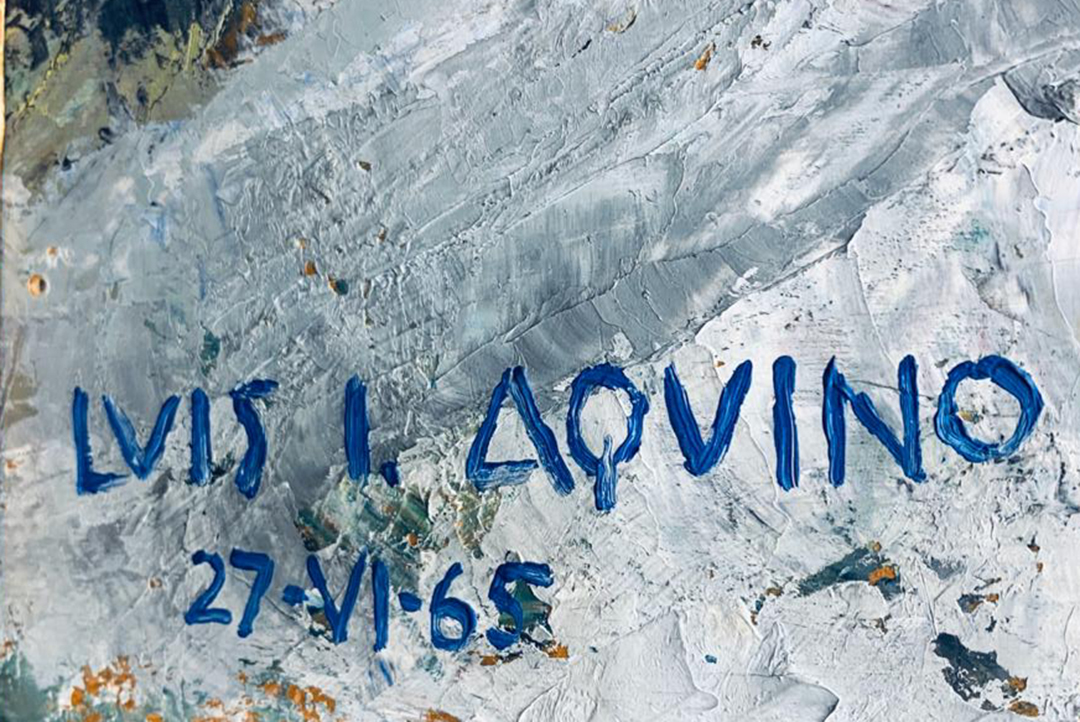 LVIS I. AQVINO
27·VI·65